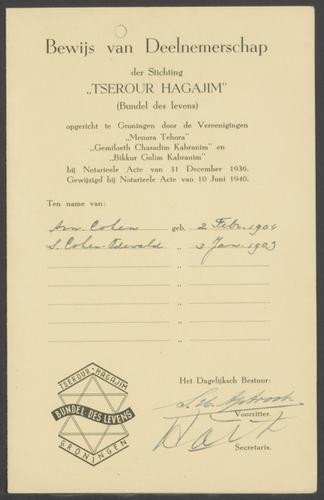 Bewijs van Deelnemerschap
der Stichting
„TSEROUR HAGAJIM”
(Bundel des levens)
opgericht te Groningen door de Vereenigingen
„Menora Tehora”
„Gemiloeth Chasadim Kabranim” en
„Bikkur Golim Kabranim”
bij Notarieele Acte van 31 December 1936.
Gewijzigd bij Notarieele Acte van 10 Juni 1940.
Ten name van:
Am. Cohen geb. 2 Febr. 1904
S. Cohen-Odewald „ 3 Jan. 1903
„
„
„
„
TSEROUR-HAGAJIM
BUNDEL DES LEVENS
GRONINGEN
Het Dagelijksch Bestuur:
Voorzitter.
Secretaris.